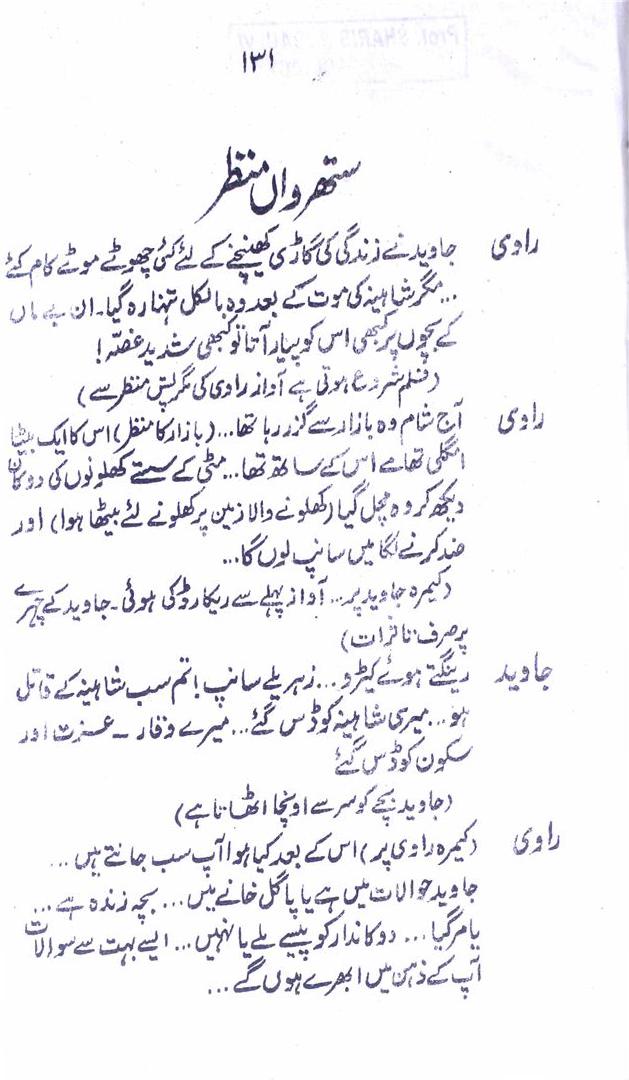 ۱۳۱
ستھرواں منظر
راوی جاوید نے زندگی کی گاڑی کھینچنے کے لئے کئی چھوٹے موٹے کام کئے
... مگر شاہینہ کی موت کے بعد وہ بالکل تنہا رہ گیا۔ ان بے ماں
کے بچوں پر کبھی اس کو پیار آتا تو کبھی شدید غصّہ!
(فلم شروع ہوتی ہے آواز راوی کی مگر پس منظر سے)
راوی آج شام وہ بازار سے گزر رہا تھا... (بازار کا منظر) اس کا ایک بیٹا
انگلی تھامے اس کے ساتھ تھا... مٹی کے سستے کھلونوں کی دوکان
دیکھ کر وہ مچل گیا (کھلونے والا زمین پر کھلونے لئے بیٹھا ہوا) اور
ضد کرنے لگا میں سانپ لوں گا...
(کیمرہ جاوید پر... آواز پہلے سے ریکارڈ کی ہوئی۔ جاوید کے چہرے
پر صرف تاثرات)
جاوید رینگتے ہوئے کیڑو... زہریلے سانپ! تم سب شاہینہ کے قاتل
ہو... میری شاہینہ کو ڈس گئے... میرے وقار ۔ عزت اور
سکون کو ڈس گئے
(جاوید بچے کو سر سے اونچا اٹھاتا ہے)
راوی (کیمرہ راوی پر) اس کے بعد کیا ہوا آپ سب جانتے ہیں...
جاوید حوالات میں ہے یا پاگل خانے میں... بچہ زندہ ہے...
یا مر گیا... دوکاندار کو پیسے ملے یا نہیں... ایسے بہت سے سوالات
آپ کے ذہن میں ابھرے ہوں گے...